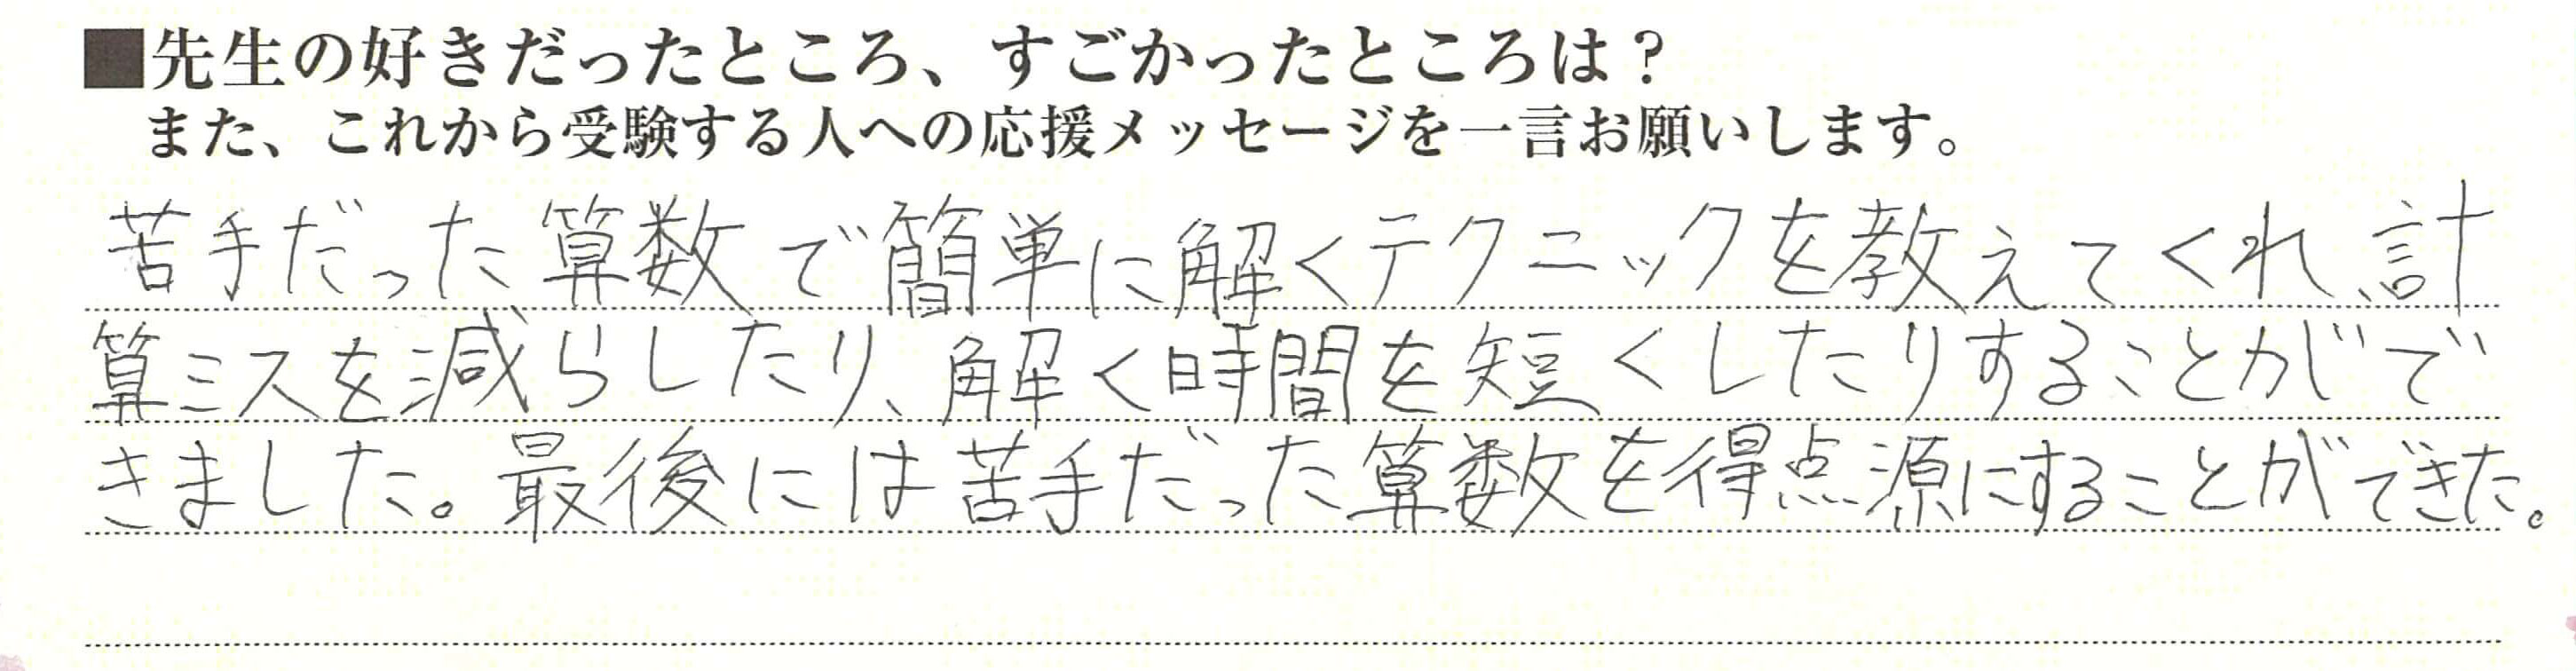 ■先生の好きだったところ、すごかったところは？
また、これから受験する人への応援メッセージを一言お願いします。
苦手だった算数で簡単に解くテクニックを教えてくれ、計
算ミスを減らしたり、解く時間を短くしたりすることがで
きました。最後には苦手だった算数を得点源にすることができた。